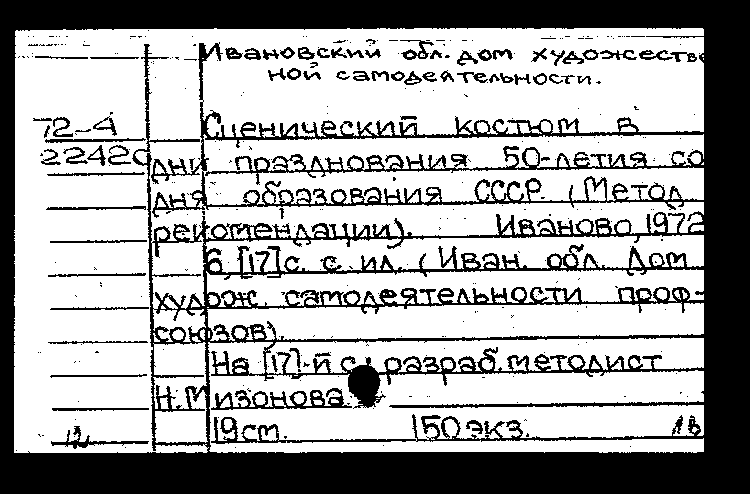 Ивановский обл. дом художестве
ной самодеятельности.
72-4
22420
Сценический костюм в
дни празднования 50-летия со
дня образования СССР. (Метод
рекомендации). Иваново, 1972
6, [17] с. с ил. (Иван. обл. Дом
худож. самодеятельности проф-
союзов).
На [17]-й с.: разраб. методист
Н. Мизонова
19 см. 150 экз.
12